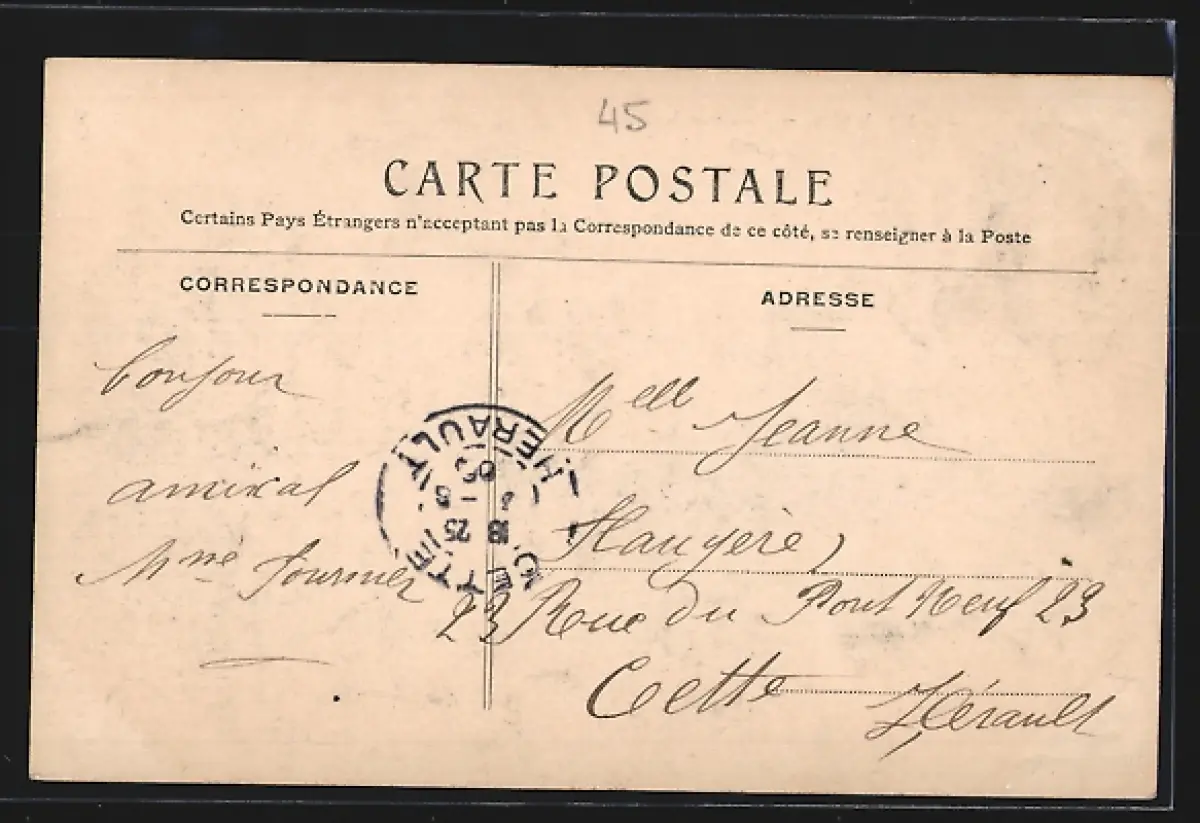 45
CARTE POSTALE
Certains Pays Étrangers n'acceptant pas la Correspondance de ce côté, se renseigner à la Poste
CORRESPONDANCE
bonjour
amical
Mme Fournier
ADRESSE
Melle Jeanne
23 Rue du Pont Neuf 23
Cette Hérault
CETTE
HÉRAULT